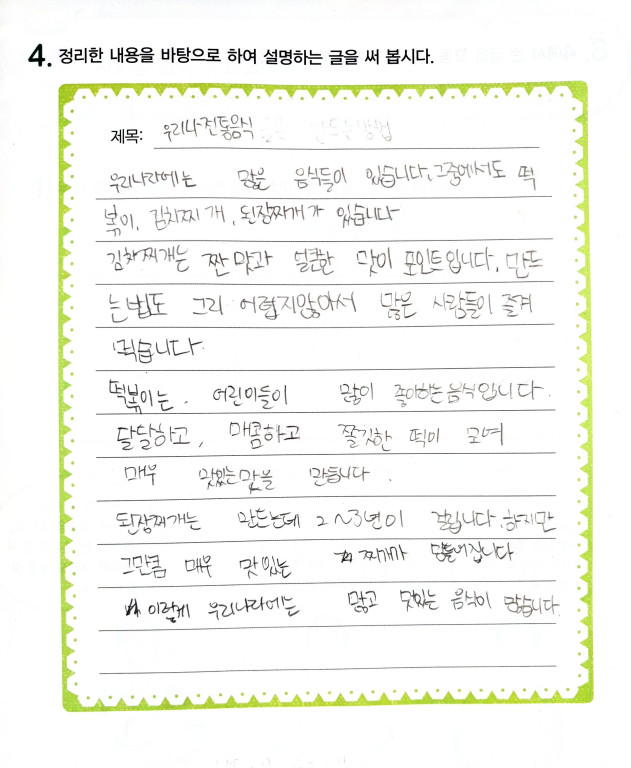 4. 정리한 내용을 바탕으로 하여 설명하는 글을 써 봅시다.
제목: 우리나전통음식
우리나라에는 많은 음식들이 있습니다.그중에서도 떡
볶이, 김치찌개, 된장찌개가 있습니다
김치찌개는 짠맛과 얼큰한 맛이 포인트입니다. 만드
는법도 그리 어렵지않아서 많은 사람들이 즐겨
먹습니다.
떡볶이는. 어린이들이 많이 좋아하는음식입니다.
달달하고, 매콤하고 쫄깃한 떡이 모여
매우 맛있는맛을 만듭니다.
된장찌개는 만드는데 2~3년이 걸립니다.하지만
그만큼 매우 맛있는 찌개가 만들어집니다
이렇게 우리나라에는 많고 맛있는 음식이 많습니다.